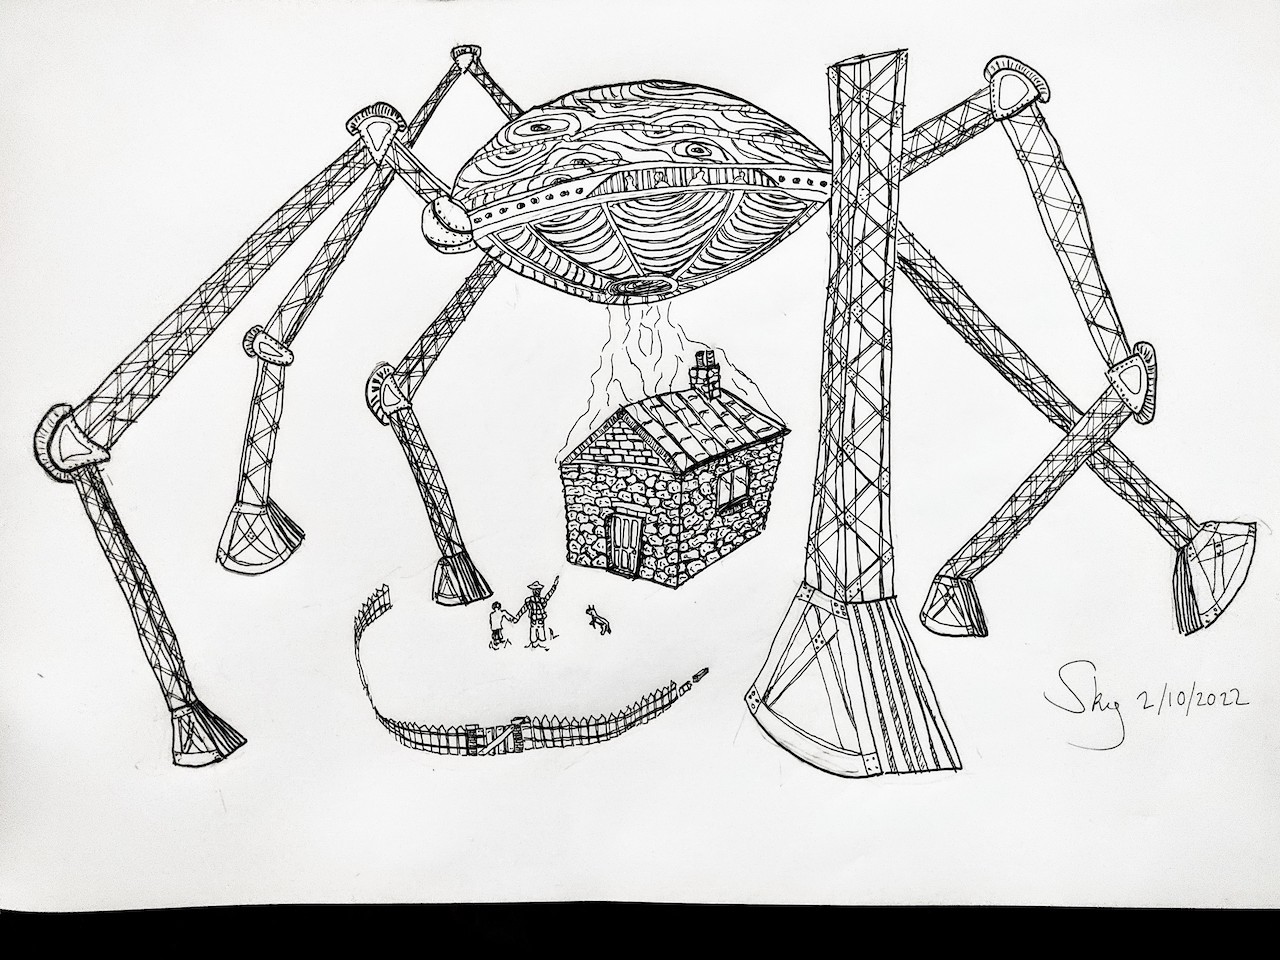 Sky 2/10/2022